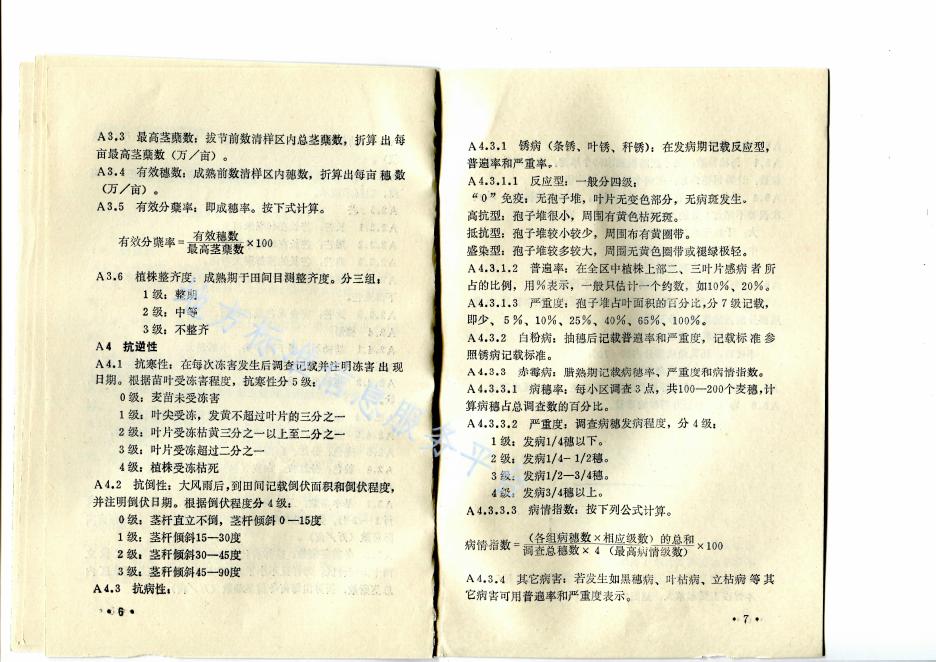 A3.3 最高茎蘖数：拔节前数清样区内总茎蘖数，折算出每
亩最高茎蘖数（万／亩）。
A3.4 有效穗数：成熟前数清样区内穗数，折算出每亩穗数
（万／亩）。
A3.5 有效分蘖率：即成穗率。按下式计算。
有效分蘖率＝有效穗数
最高茎蘖数×100
A3.6 植株整齐度：成熟期于田间目测整齐度。分三组：
1级：整期
2级：中等
3级：不整齐
A4 抗逆性
A4.1 抗寒性：在每次冻害发生后调查记载并注明冻害出现
日期。根据苗叶受冻害程度，抗寒性分5级：
0级：麦苗未受冻害
1级：叶尖受冻，发黄不超过叶片的三分之一
2级：叶片受冻枯黄三分之一以上至二分之一
3级：叶片受冻超过二分之一
4级：植株受冻枯死
A4.2 抗倒性：大风雨后，到田间记载倒伏面积和倒伏程度，
并注明倒伏日期。根据倒伏程度分4级：
0级：茎杆直立不倒，茎杆倾斜0—15度
1级：茎杆倾斜15—30度
2级：茎杆倾斜30—45度
3级：茎杆倾斜45—90度
A4.3 抗病性：
·6·
A4.3.1 锈病（条锈、叶锈、秆锈）：在发病期记载反应型，
普遍率和严重率。
A4.3.1.1 反应型：一般分四级：
“0”免疫：无孢子堆，叶片无变色部分，无病斑发生。
高抗型：孢子堆很小，周围有黄色枯死斑。
抵抗型：孢子堆较小较少，周围布有黄圈带。
盛染型：孢子堆较多较大，周围无黄色圈带或褪绿极轻。
A4.3.1.2 普遍率：在全区中植株上部二、三叶片感病者所
占的比例，用％表示，一般只估计一个约数，如10％、20％。
A4.3.1.3 严重度：孢子堆占叶面积的百分比，分7级记载，
即少、5％、10％、25％、40％、65％、100％。
A4.3.2 白粉病：抽穗后记载普遍率和严重度，记载标准参
照锈病记载标准。
A4.3.3 赤霉病：腊熟期记载病穗率、严重度和病情指数。
A4.3.3.1 病穗率：每小区调查3点，共100—200个麦穗，计
算病穗占总调查数的百分比。
A4.3.3.2 严重度：调查病穗发病程度，分4级：
1级：发病1/4穗以下。
2级：发病1/4-1/2穗。
3级：发病1/2—3/4穗。
4级：发病3/4穗以上。
A4.3.3.3 病情指数：按下列公式计算。
病情指数＝（各组病穗数×相应级数）的总和
调查总穗数×4（最高病情级数）×100
A4.3.4 其它病害：若发生如黑穗病、叶枯病、立枯病等其
它病害可用普遍率和严重度表示。
·7·
地方标准信息服务平台